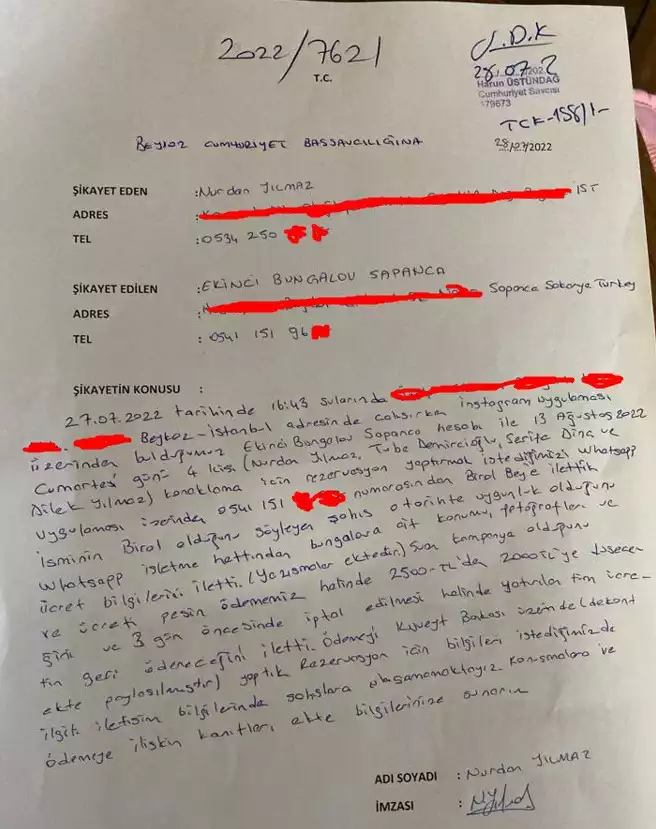 2022/7621
T.C.
28.07.2022
Harun ÜSTÜNDAĞ
Cumhuriyet Savcısı
179673
TCK-158/1-
28/07/2022
BEYKOZ CUMHURİYET BAŞSAVCILIĞINA
ŞİKAYET EDEN :Nurdan YILMAZ
ADRES : İST
TEL :0534 250
ŞİKAYET EDİLEN :EKİNCİ BUNGALOV SAPANCA
ADRES : Sapanca Sakarya Turkey
TEL : 0541 151 96
ŞİKAYETİN KONUSU :
27.07.2022 tarihinde 16:43 sularında
Beykoz-İstanbul adresinde çalışırken instagram uygulaması
üzerinden bulduğumuz Ekinci Bungalov Sapanca hesabı ile 13 Ağustos 2022
Cumartesi günü 4 kişi (Nurdan Yılmaz, Tuba Demircioğlu, Şerife Dina ve
Dilek Yılmaz) konaklama için rezervasyon yaptırmak istediğimizi Whatsapp
uygulaması üzerinden 0541 151 numarasından Birol Bey'e ilettik
İsminin Birol olduğunu söyleyen şahıs o tarihte uygunluk olduğunu
Whatsapp işletme hattından bungalova ait konumu, fotoğrafları ve
ücret bilgilerini iletti. (Yazışmalar ektedir.) Şuan kampanya olduğunu
ve ücreti peşin ödememiz halinde 2500-TL'den 2000TL'ye düşecen
ğini ve 3 gün öncesinde iptal edilmesi halinde yatırılan tüm ücre-
tin geri ödeneceğini iletti. Ödemeyi Kuveyt Bakası üzeinde (dekont
ekte paylaşılmıştır) yaptık Rezervasyon için bilgileri istediğimizde
ilgili iletişim bilgilerinde şahıslara ulaşamamaktayız. Konuşmalara ve
ödemeye ilişkin kanıtları ekte bilgilerinize sunarım
ADI SOYADI : Nurdan YILMAZ
İMZASI :